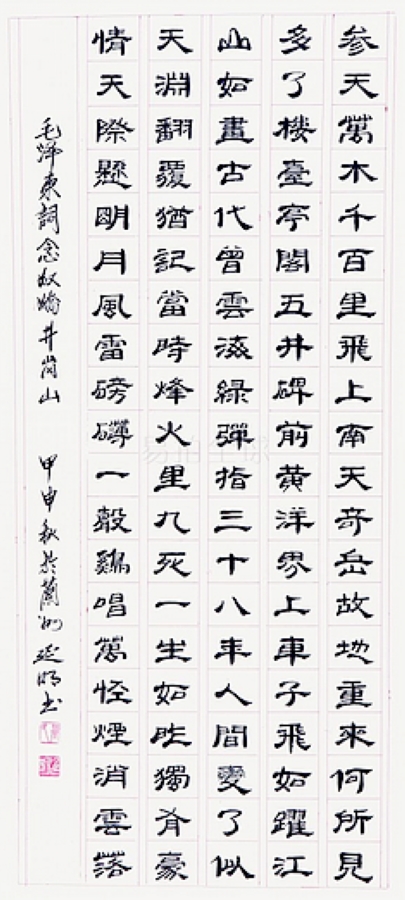 参天萬木千百里飛上南天奇岳故地重來何所見
多了樓臺亭閣五井碑前黄洋界上車子飛如躍江
山如畫古代曾雲海綠彈指三十八年人間變了似
天淵翻覆猶記當時烽火里九死一生如昨獨有豪
情天際懸明月風雷磅礴一聲鷄唱萬怪煙消雲落
毛澤東詞念奴嬌井崗山 甲申秋於蘭州 延明書